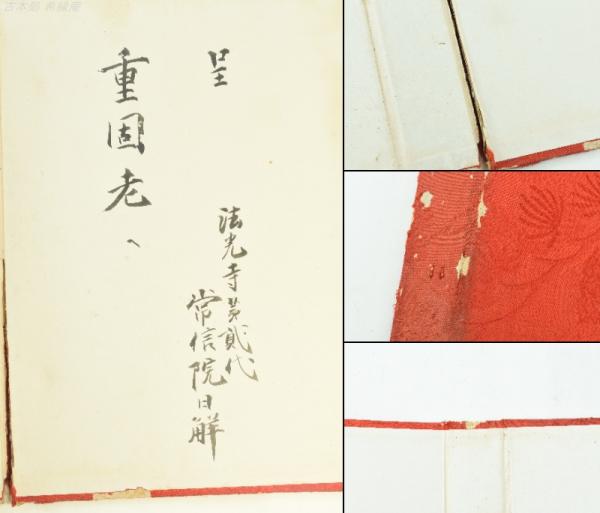 古本処 希縁庵
呈
法光寺第貳代
常信院日解
重固老へ